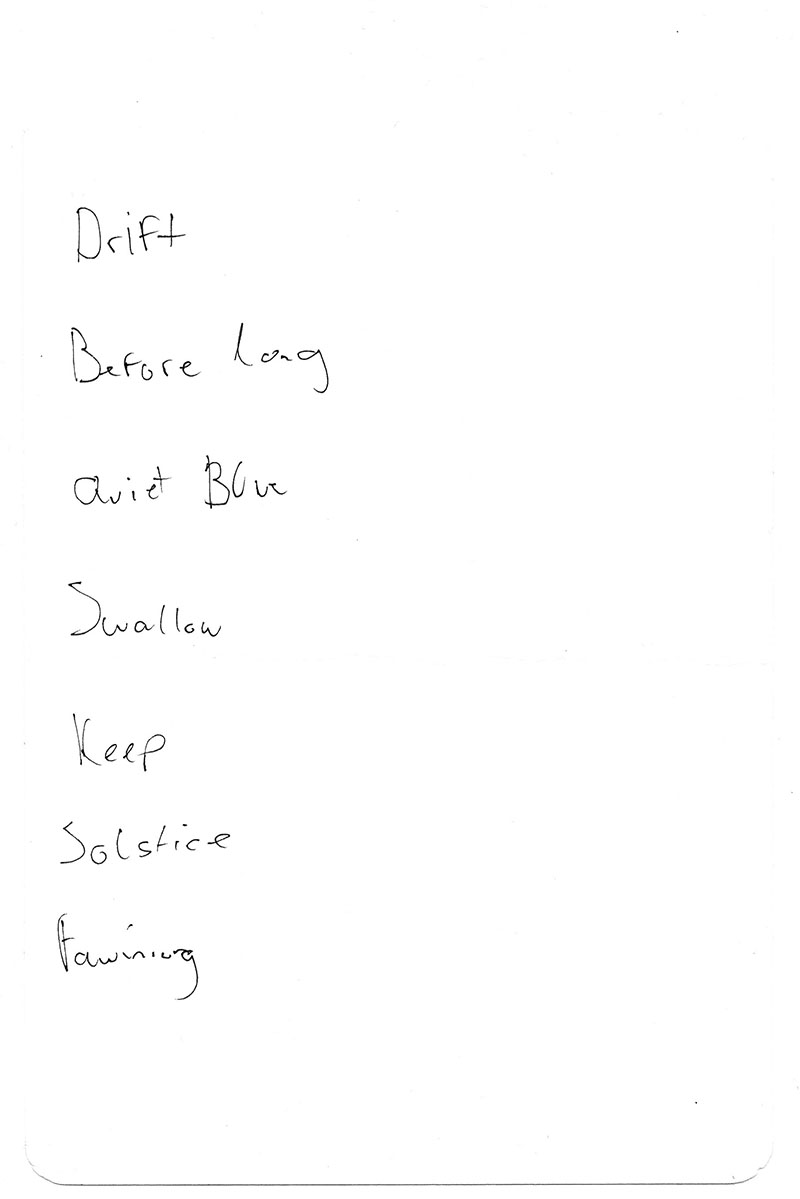 Drift
Before long
Quiet Blue
Swallow
Keep
Solstice